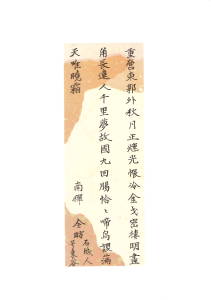 重營東郭外秋月正輝光帳冷金戈密樓明畫
角長遠人千里夢故國九回腸恰〻啼烏滿
天唯曉霜
南
全時 石城人
号東谷